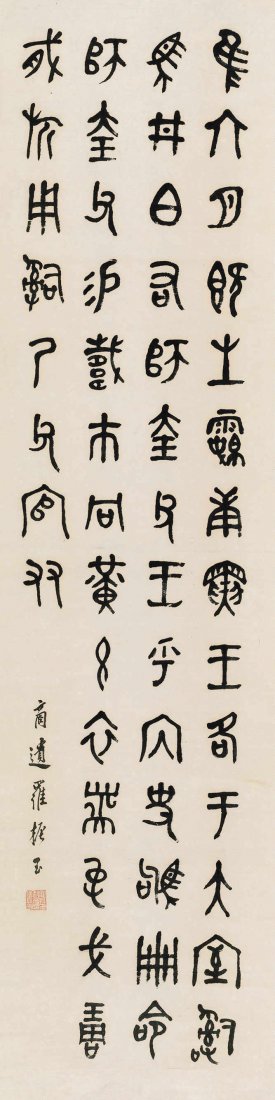 隹六月既生霸庚寅王各于大室𤔲
馬井白右師奎父王乎內史駒冊命
師奎父易𢦚巿冋黃玄衣黹屯戈琱
㦸旂用𤔲乃父官友
商遺羅振玉